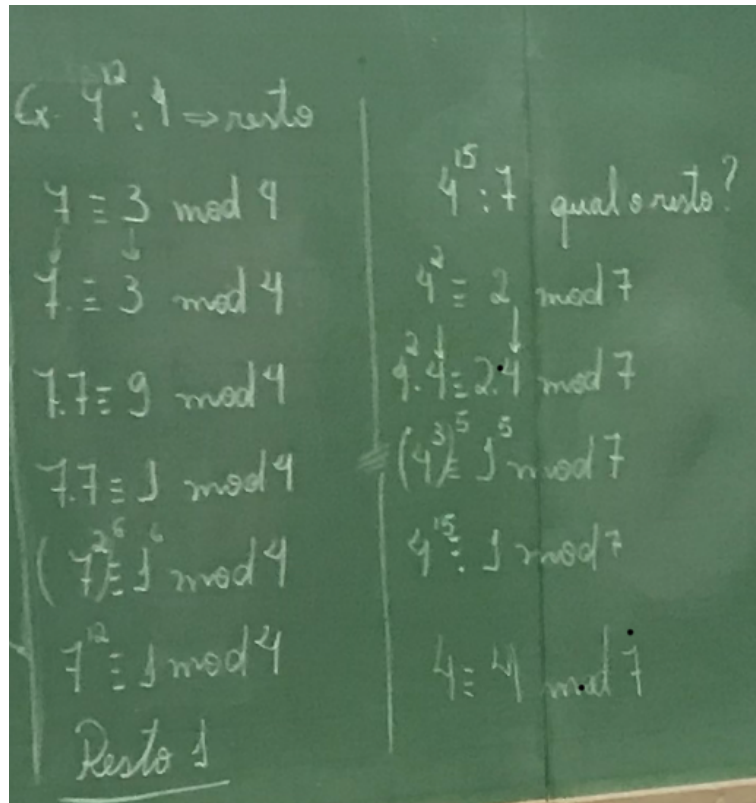 Ex. 7¹² : 4 ⇒ resto
7 ≡ 3 mod 4
↓ ↓
7. ≡ 3 mod 4
7.7 ≡ 9 mod 4
7.7 ≡ 1 mod 4
(7²)⁶ ≡ 1⁶ mod 4
7¹² ≡ 1 mod 4
Resto 1
4¹⁵ : 7 qual o resto?
4² ≡ 2 mod 7
4².4 ≡ 2.4 mod 7
(4³)⁵ ≡ 1⁵ mod 7
4¹⁵ ≡ 1 mod 7
4 ≡ 4 mod 7